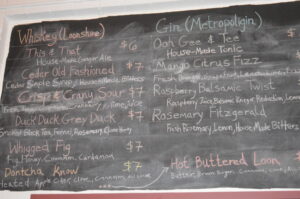 Whiskey (Loonshine)
This & That $6
House-Made Ginger Ale
Ceder Old Fashioned $7
Ceder Simple Syrup, House Made Bitters
Crisp & Crany Sour $7
Cranberry, Lime Juice
Duck Duck Grey Duck $7
Smoked Black Tea, Fennel, Rosemary, Clove Honey
Whigged Fig $7
Fig, Honey, Cinnamon, Cardamon
Dontcha Know $7
Heated Apple Cider, Cinnamon
Gin (Metropoligin)
Ooh Gee & Tee
House-Made Tonic
Mango Citrus Fizz
Fresh
Raspberry Balsamic Twist
Raspberry Juice, Balsamic Vinegar Reduction, Lemon
Rosemary Fitzgerald
Fresh Rosemary, Lemon, House Made Bitters
Hot Buttered Loon
Butter, Brown Sugar, Cinnamon